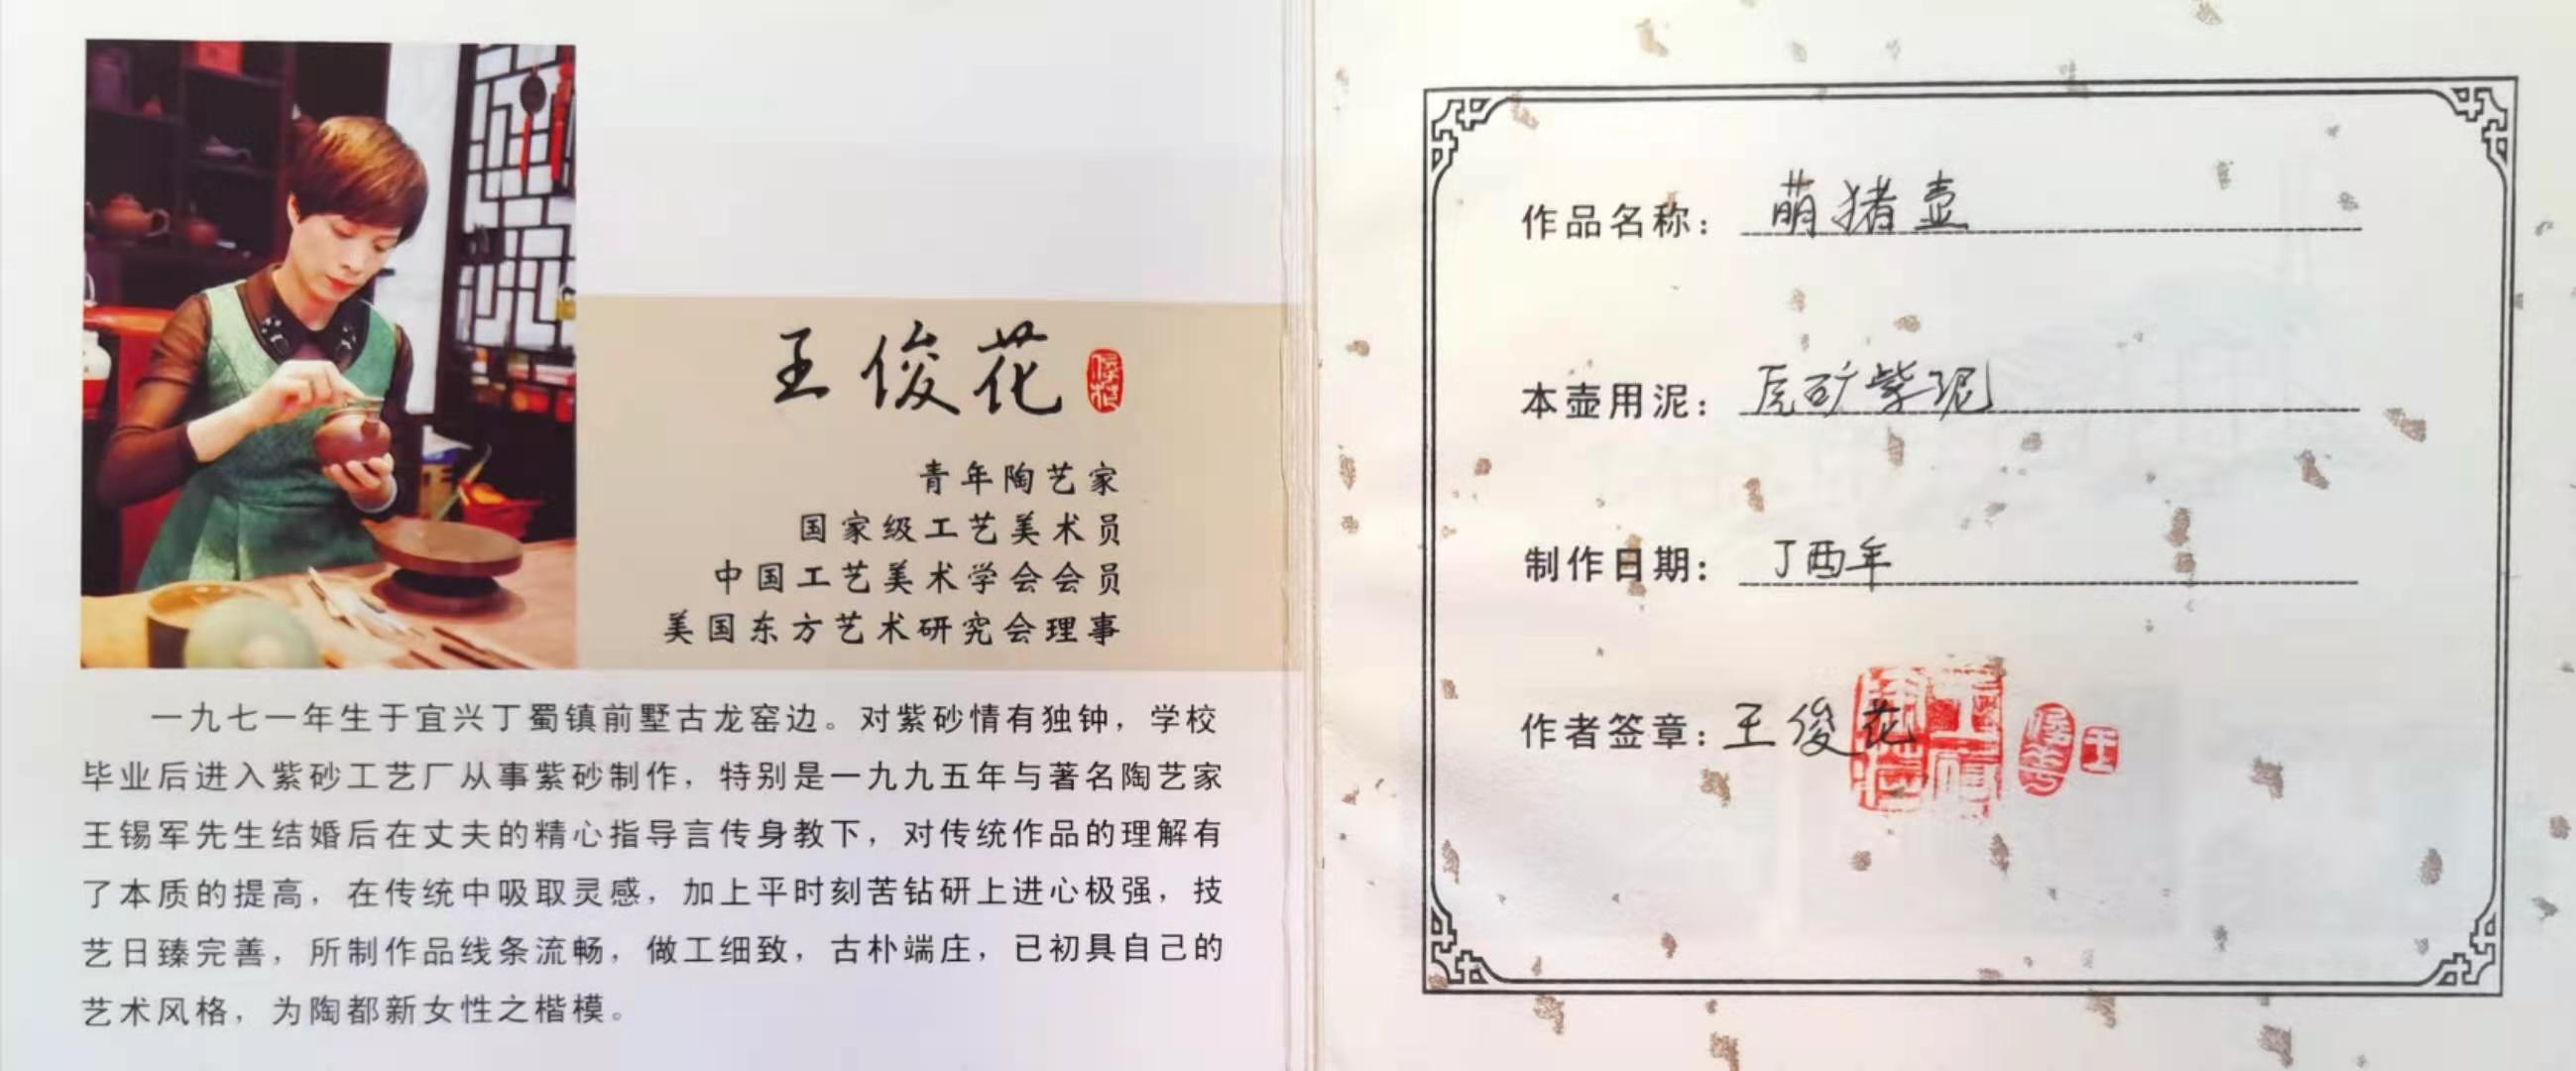 王俊花
俊花
青年陶艺家
国家级工艺美术员
中国工艺美术学会会员
美国东方艺术研究会理事
一九七一年生于宜兴丁蜀镇前墅古龙窑边。对紫砂情有独钟，学校
毕业后进入紫砂工艺厂从事紫砂制作，特别是一九九五年与著名陶艺家
王锡军先生结婚后在丈夫的精心指导言传身教下，对传统作品的理解有
了本质的提高，在传统中吸取灵感，加上平时刻苦钻研上进心极强，技
艺日臻完善，所制作品线条流畅，做工细致，古朴端庄，已初具自己的
艺术风格，为陶都新女性之楷模。
作品名称：萌猪壶
本壶用泥：矿紫泥
制作日期：丁酉年
作者签章：王俊花
王